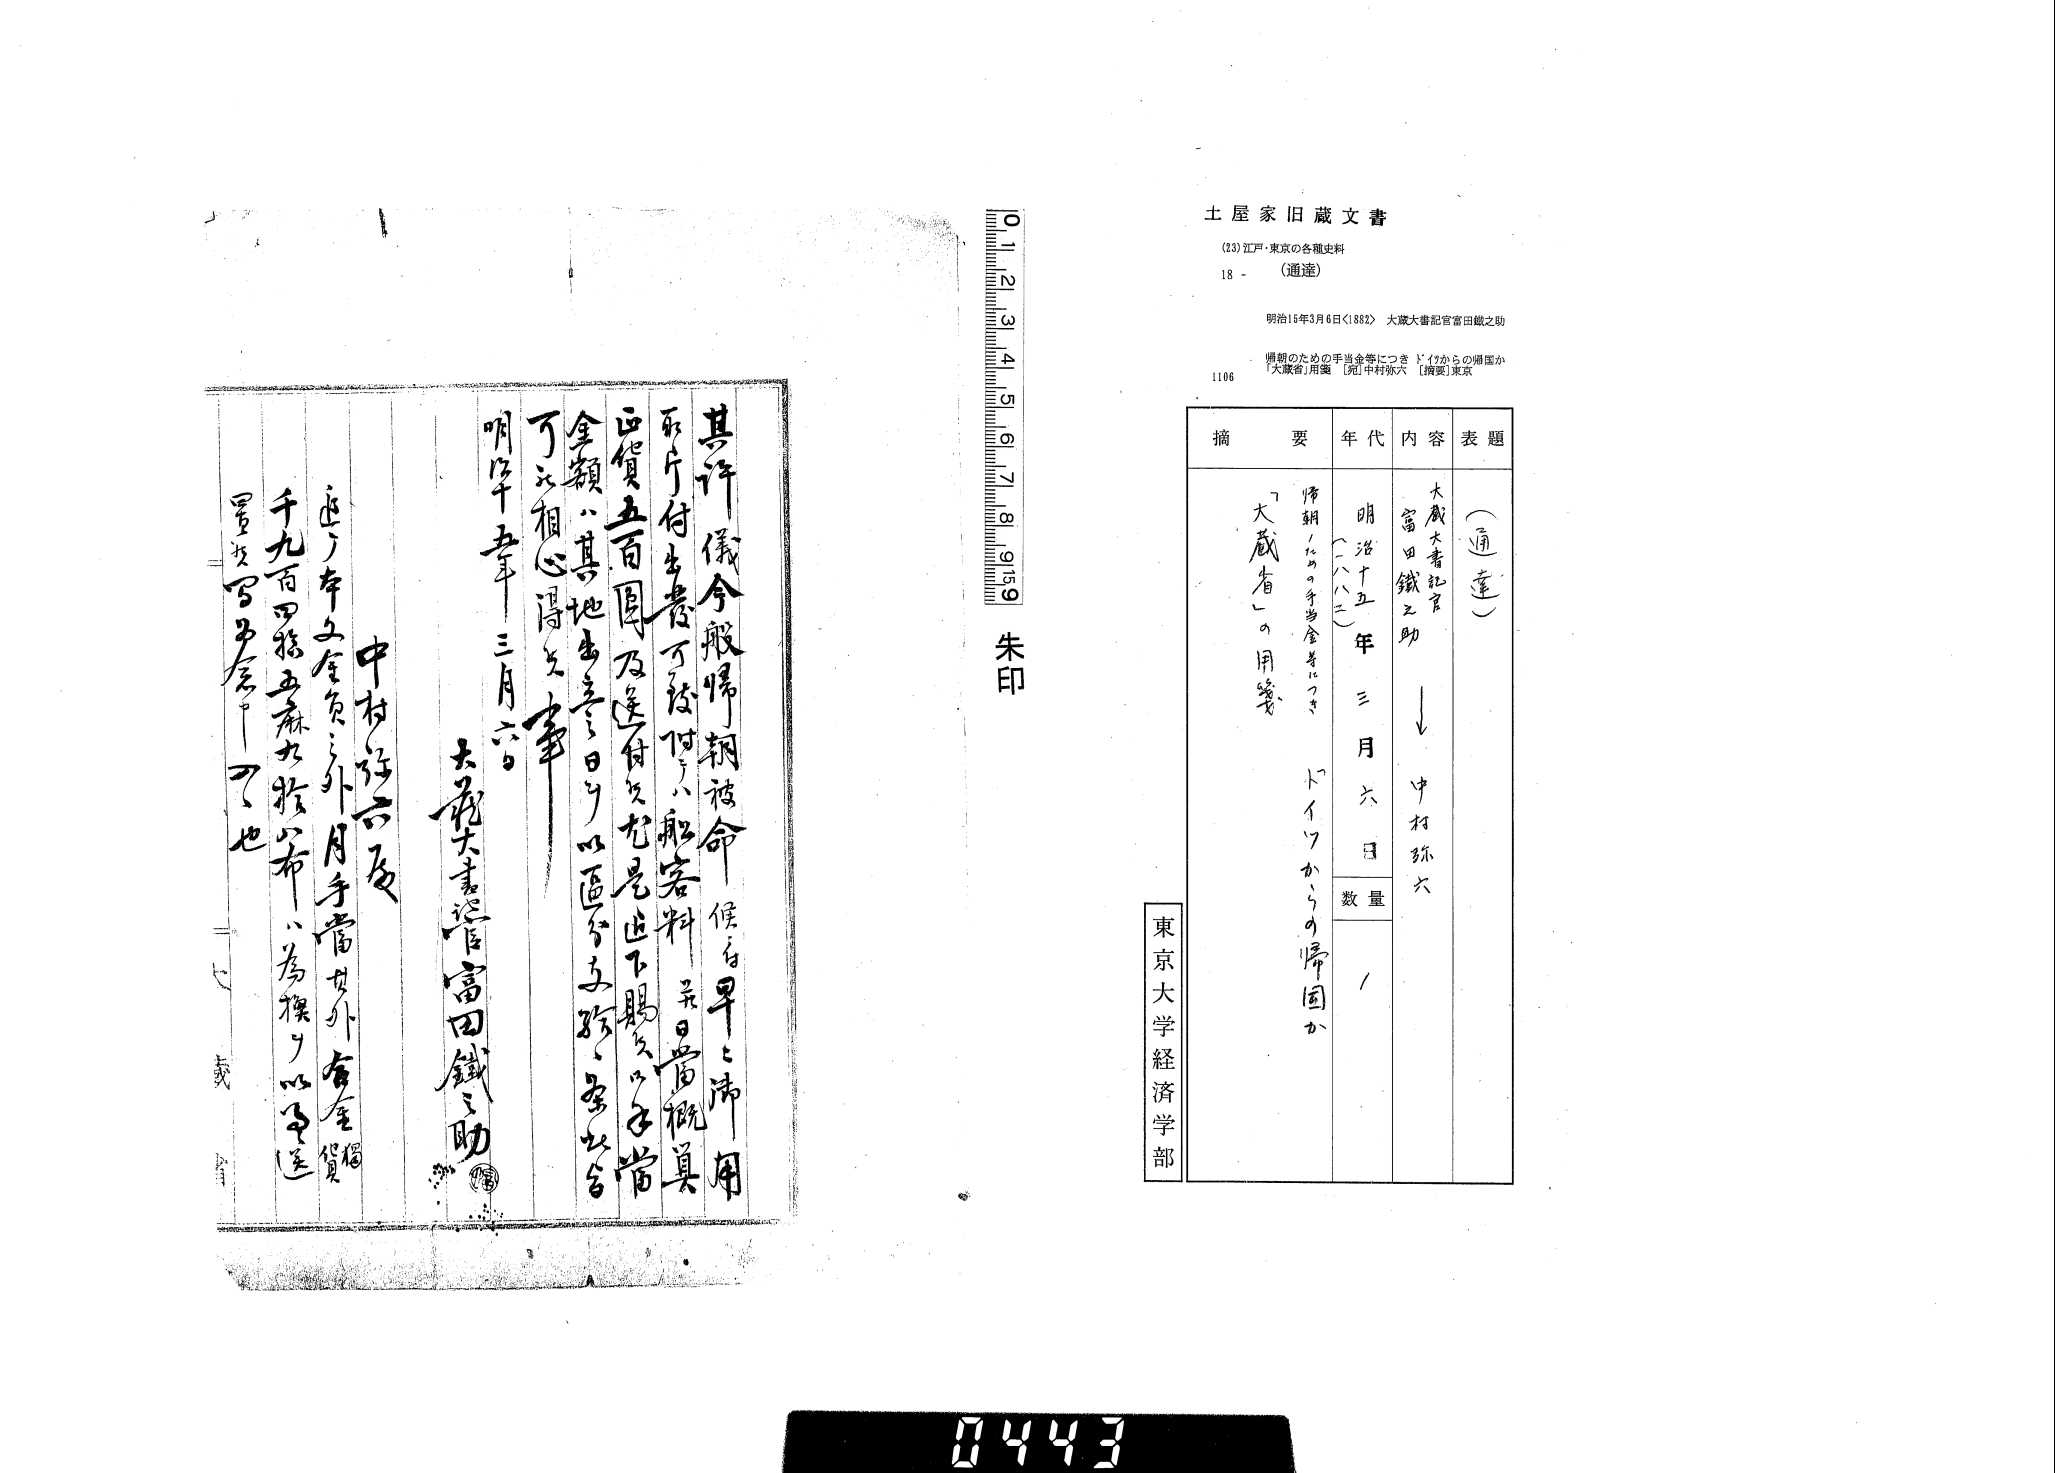 土屋家旧蔵文書
(23)江戸・東京の各種史料
18 - (通達)
明治15年3月6日<1882> 大蔵大書記官富田鐵之助
帰朝のための手当金等につき ドイツからの帰国か
1106 「大蔵省」用箋 [宛]中村弥六 [摘要]東京
表題
(通達)
内容
大蔵大書記官
富田鐵之助 → 中村弥六
年代
明治十五年三月六日
(一八八二)
数量
1
摘要
帰朝ノための手当金等につき ドイツからの帰国か
「大蔵省」の用箋
東京大学経済学部
朱印
0 1 2 3 4 5 6 7 8 9 15 9
其許儀今般帰朝被命候ニ付早々御用
取片付出發可致附テハ船客料并日當概算
正貨五百圓及送付候尤是迄下賜候手當
金額ハ其地出立之日ヲ以區分支給候条此旨
可被相心得候事
明治十五年三月六日
大蔵大書記官富田鐵之助
中村弥六殿
追テ本文金員之外月手當其外合金獨貨
千九百四拾五麻九拾八布ハ為換ヲ以送
置候為念申
也
大蔵省
0443